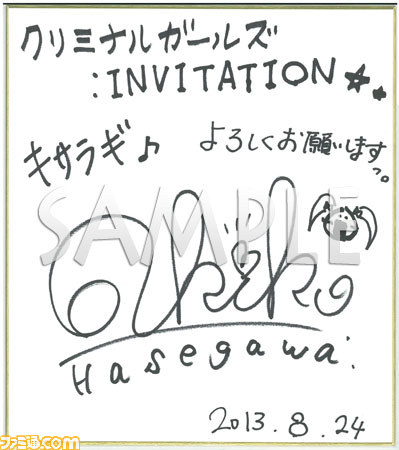 クリミナルガールズ
:INVITATION★
キサラギ♪
よろしくお願いしますっ。
SAMPLE
Akiko
Hasegawa.
2013.8.24
ファミ通.com